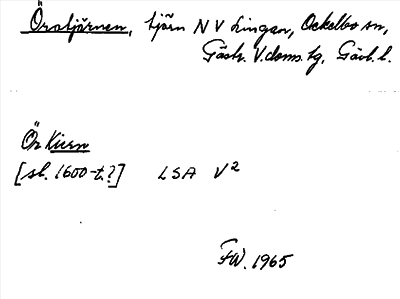 Öratjärnen, tjärn NV Lingan, Ockelbo sn,
Gästr. V.doms. tg, Gävl. l.
Ör Kiern
[sl. 1600-t.?] LSA V2
FW. 1965